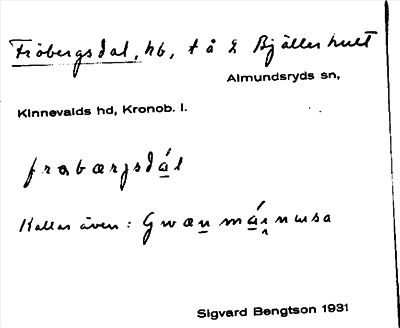 Fröbergsdal, hb, t å 2 Bjällerhult
Almundsryds sn,
Kinnevalds hd, Kronob. l.
frabærjsdál
Kallas även: Gwæn mánnusa
Sigvard Bengtson 1931